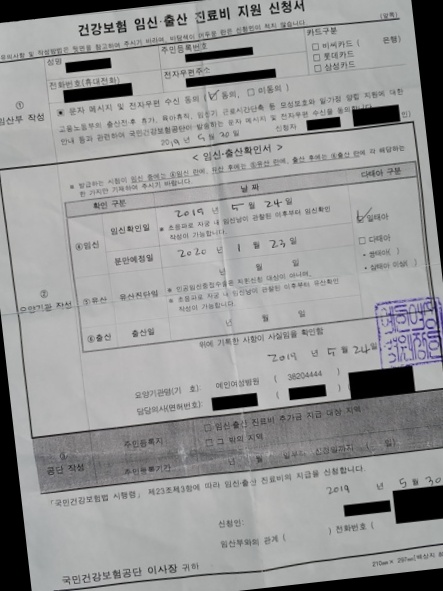 건강보험 임신·출산 진료비 지원 신청서
유의사항 및 작성방법은 뒷면을 참고하여 주시기 바라며, 바탕색이 어두운 란은 신청인이 적지 않습니다. (앞쪽)
① 임산부 작성
성명
주민등록번호
카드구분
□ 비씨카드 ( 은행)
□ 롯데카드
□ 삼성카드
전화번호(휴대전화)
전자우편주소
▣ 문자 메시지 및 전자우편 수신 동의 (☑ 동의, □ 미동의 )
고용노동부의 출산전·후 휴가, 육아휴직, 임신기 근로시간단축 등 모성보호와 일·가정 양립 지원에 대한
안내 등과 관련하여 국민건강보험공단이 발송하는 문자 메시지 및 전자우편 수신을 동의합니다.
2019 년 5 월 30 일 신청자
< 임신·출산확인서 >
※ 발급하는 시점이 임신 중에는 ④임신 란에, 유산 후에는 ⑤유산 란에, 출산 후에는 ⑥출산 란에 각 해당하는
한 가지만 기재하여 주시기 바랍니다.
② 요양기관 작성
확인 구분 날 짜 다태아 구분
④임신 임신확인일 2019 년 5 월 24 일
※ 초음파로 자궁 내 임신낭이 관찰된 이후부터 임신확인
작성이 가능합니다.
분만예정일 2020 년 1 월 23 일
☑ 일태아
□ 다태아
⑤유산 유산진단일 년 월 일
※ 인공임신중절수술은 지원신청 대상이 아니며,
※ 초음파로 자궁 내 임신낭이 관찰된 이후부터 유산확인
작성이 가능합니다.
⑥출산 출산일 년 월 일
위에 기록한 사항이 사실임을 확인함
2019 년 5 월 24 일
요양기관명(기 호): 예인여성병원 ( 38204444 )
담당의사(면허번호): ( )
③ 공단 작성
주민등록지 □ 임신·출산 진료비 추가금 지급 대상 지역
□ 그 밖의 지역
주민등록기간 년 월 일부터 신청일까지 ( 일)
「국민건강보험법 시행령」 제23조제3항에 따라 임신·출산 진료비의 지급을 신청합니다.
2019 년 5 월 30
신청인:
임산부와의 관계 ( ) 전화번호 (
국민건강보험공단 이사장 귀하
210㎜×297㎜